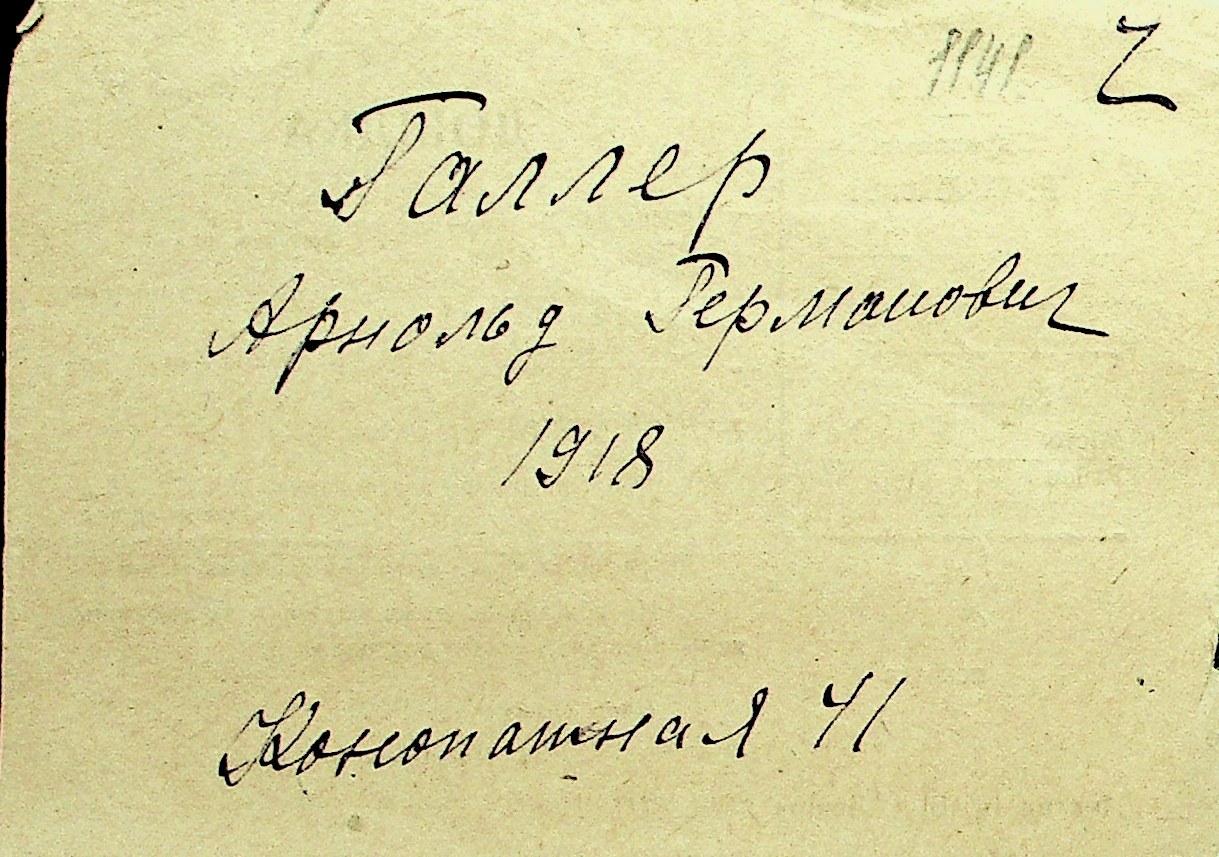 Галлер
Арнольд Германович
1918
Конопатная 41